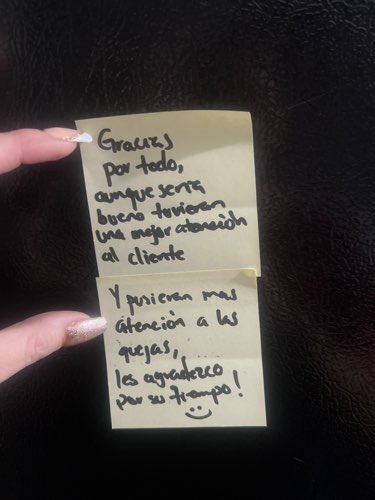 Gracias
por todo,
aunque seria
bueno tuvieran
una mejor atención
al cliente
Y pusieran mas
atención a las
quejas,
les agradezco
por su tiempo!